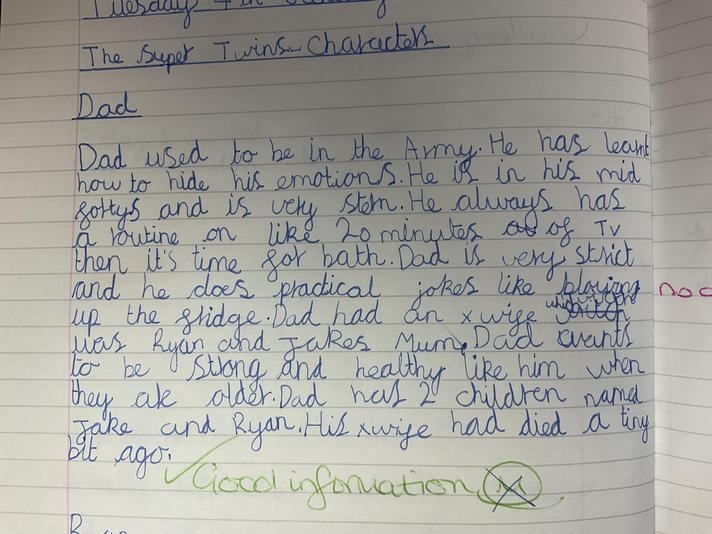 Tuesday 4th
The Super Twins Characters
Dad
Dad used to be in the Army. He has learnt
how to hide his emotions. He is in his mid
fortys and is very stern. He always has
a routine on like 20 minutes of TV
then it's time for bath. Dad is very strict
and he does practical jokes like blowing
up the fridge. Dad had an x wife
was Ryan and Jakes Mum. Dad wants
to be strong and healthy like him when
they are older. Dad has 2 children named
Jake and Ryan. His xwife had died a tiny
bit ago.
Good information